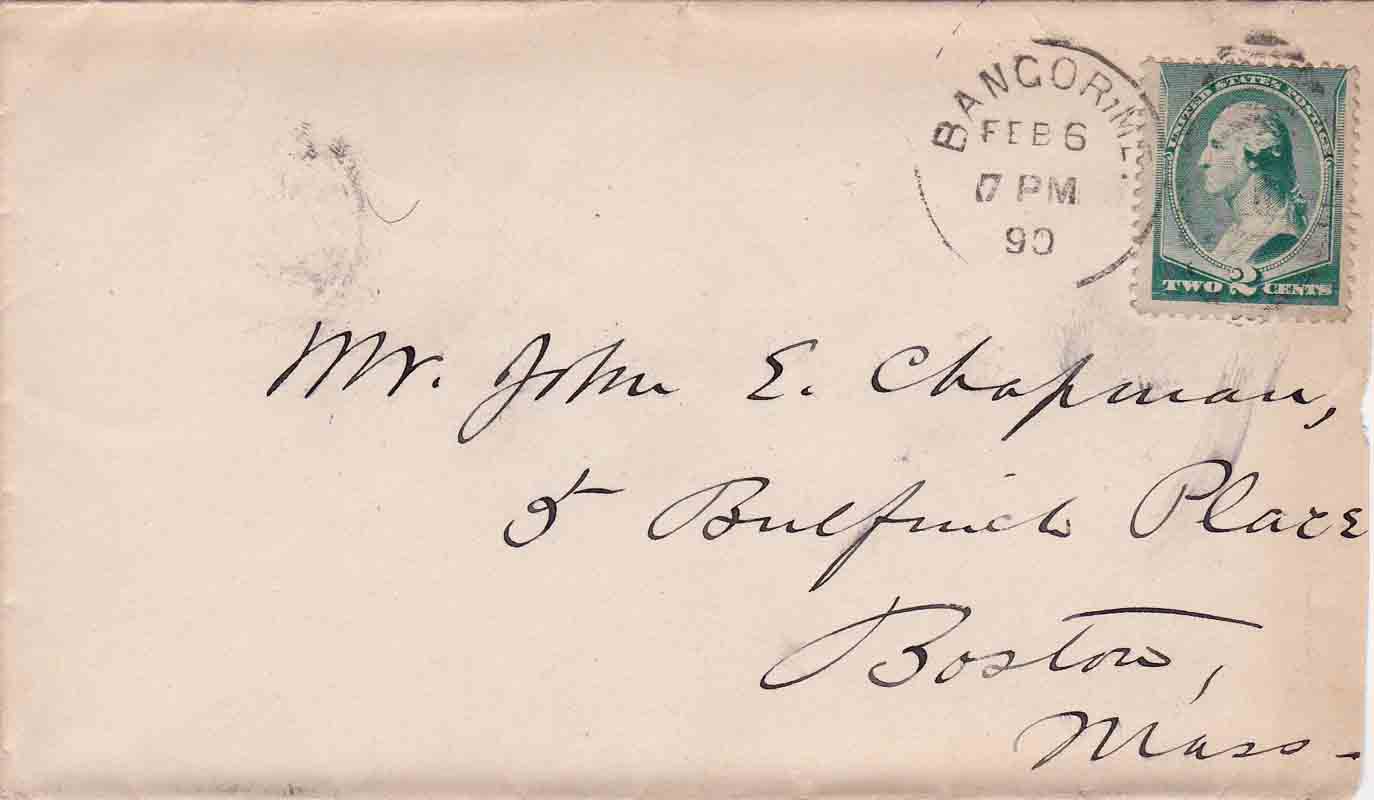 BANGOR, ME.
FEB 6
7 PM
90
UNITED STATES POSTAGE
TWO 2 CENTS
Mr. John E. Chapman,
5 Bulfinch Place
Boston,
Mass-